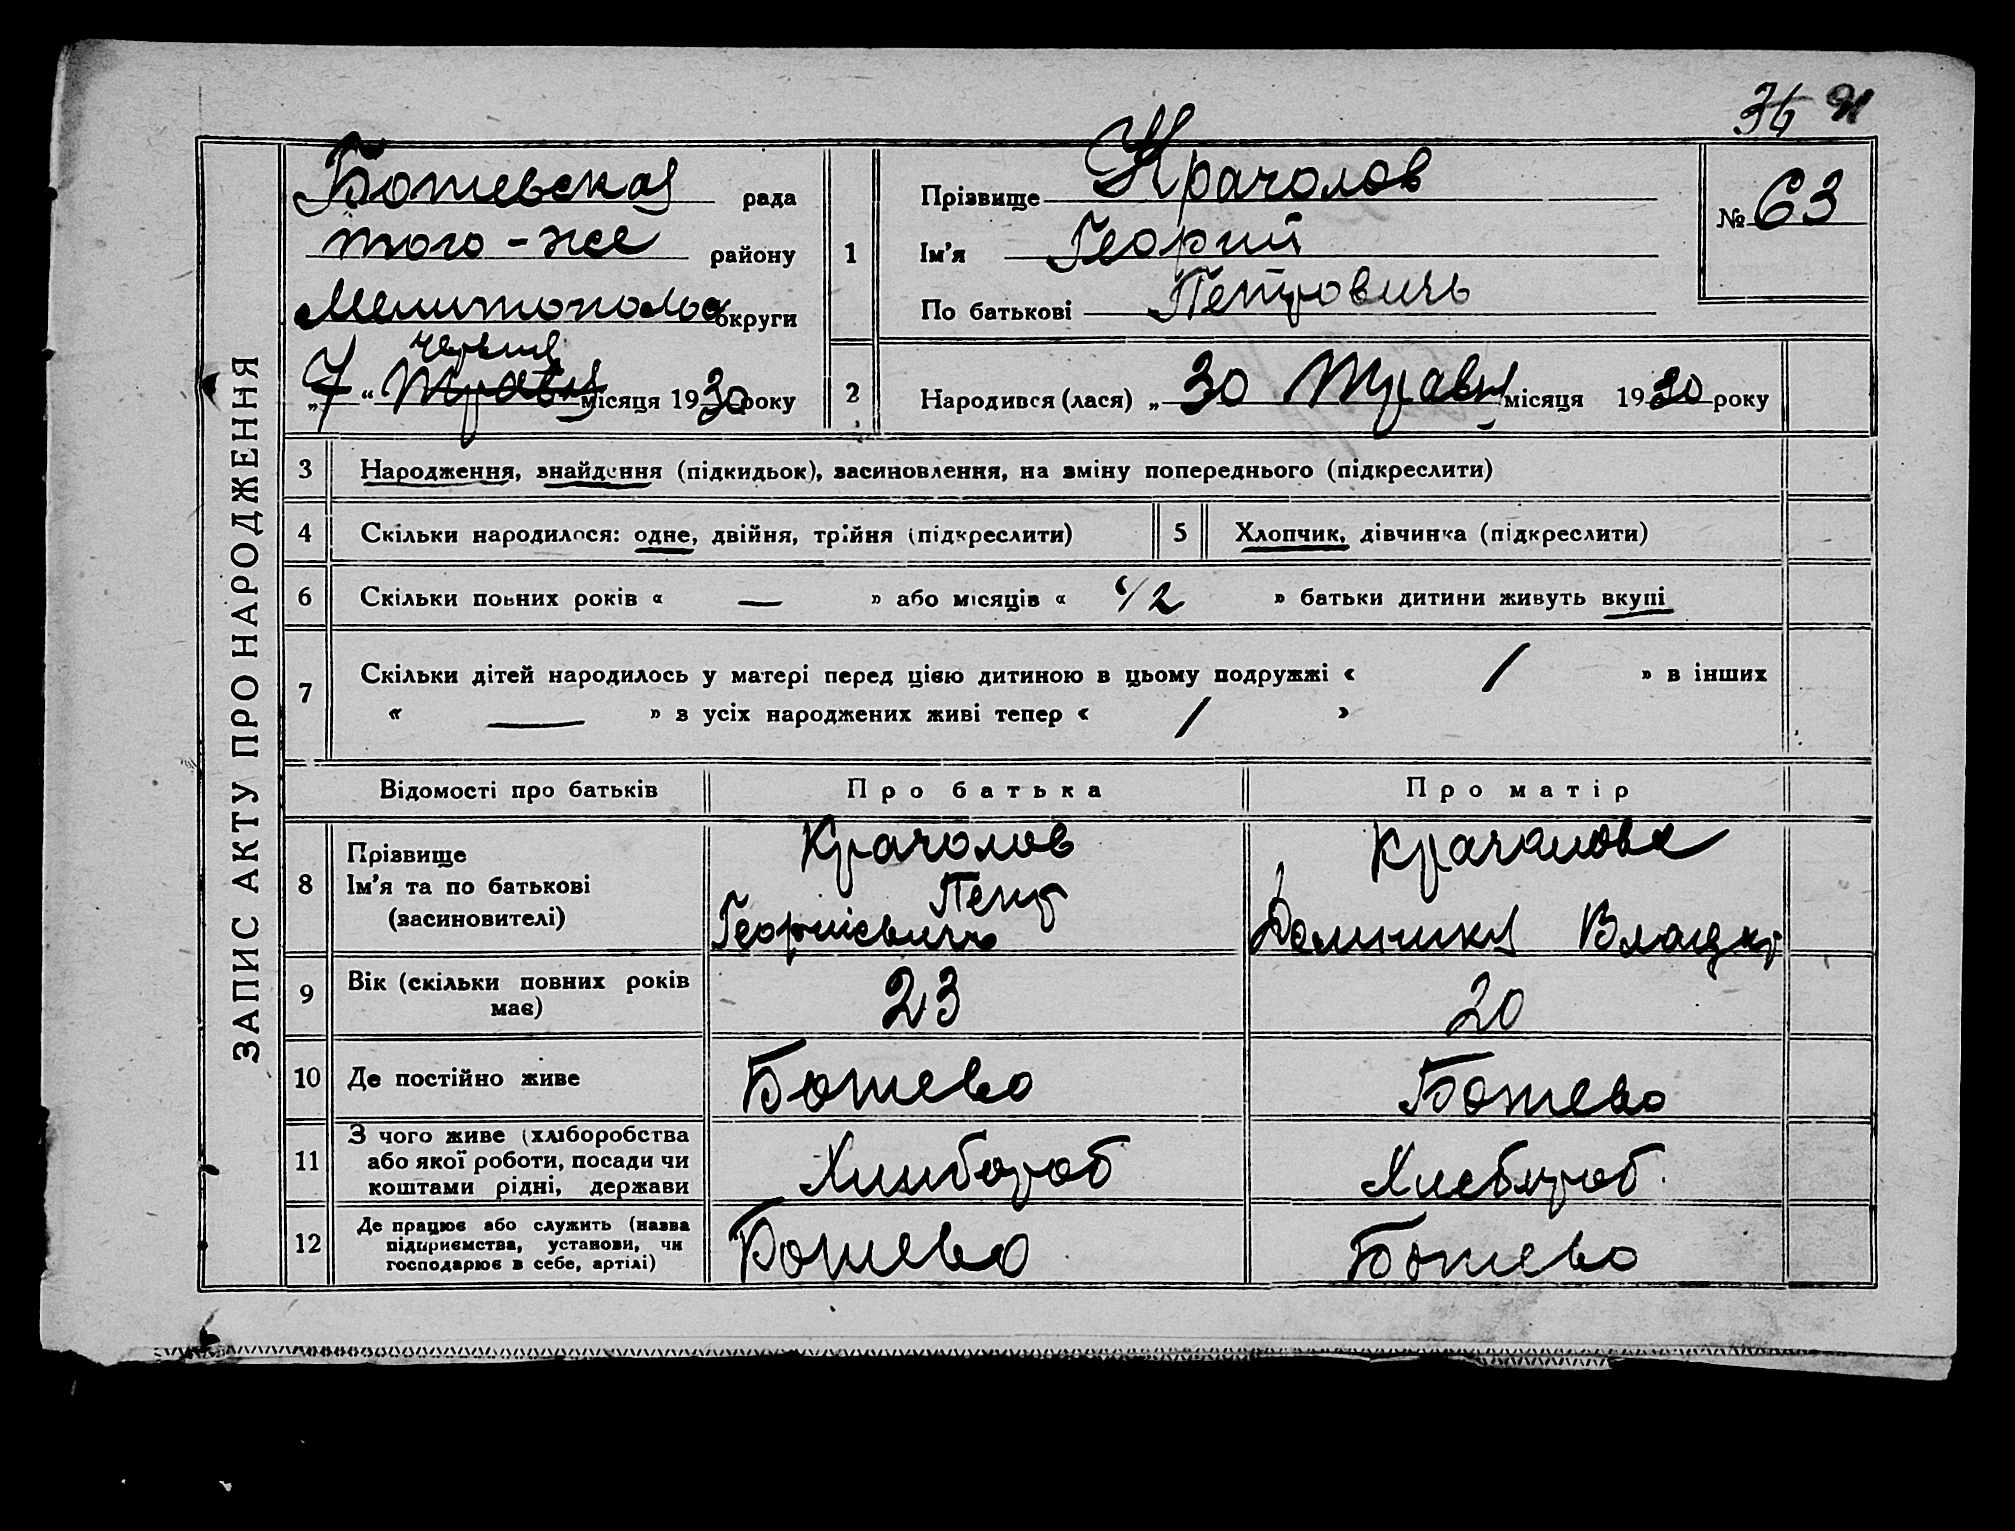 36
ЗАПИС АКТУ ПРО НАРОДЖЕННЯ
Ботевская рада
того-же району
Мелитопольс округи
червня
„7“ Травня місяця 1930 року
1
Прізвище Крачолов
Ім'я Георгий
По батькові Петровичь
№ 63
2
Народився (лася) „ 30 Травня місяця 1930 року
3 Народження, знайдення (підкидьок), засиновлення, на зміну попереднього (підкреслити)
4 Скільки народилося: одне, двійня, трійня (підкреслити) 5 Хлопчик, дівчинка (підкреслити)
6 Скільки повних років « — » або місяців « » батьки дитини живуть вкупі
7 Скільки дітей народилось у матері перед цією дитиною в цьому подружжі « 1 » в інших
« — » з усіх народжених живі тепер « 1 »
Відомості про батьків Про батька Про матір
8 Прізвище
Ім'я та по батькові
(засиновителі)
Крачолов
Петр
Георгиевичь
Крачолова
9 Вік (скільки повних років
має)
23 20
10 Де постійно живе Ботево Ботево
11 З чого живе (хліборобства
або якої роботи, посади чи
коштами рідні, держави
Хлибороб Хлебороб
12 Де працює або служить (назва
підприємства, установи, чи
господарює в себе, артілі)
Ботево Ботево